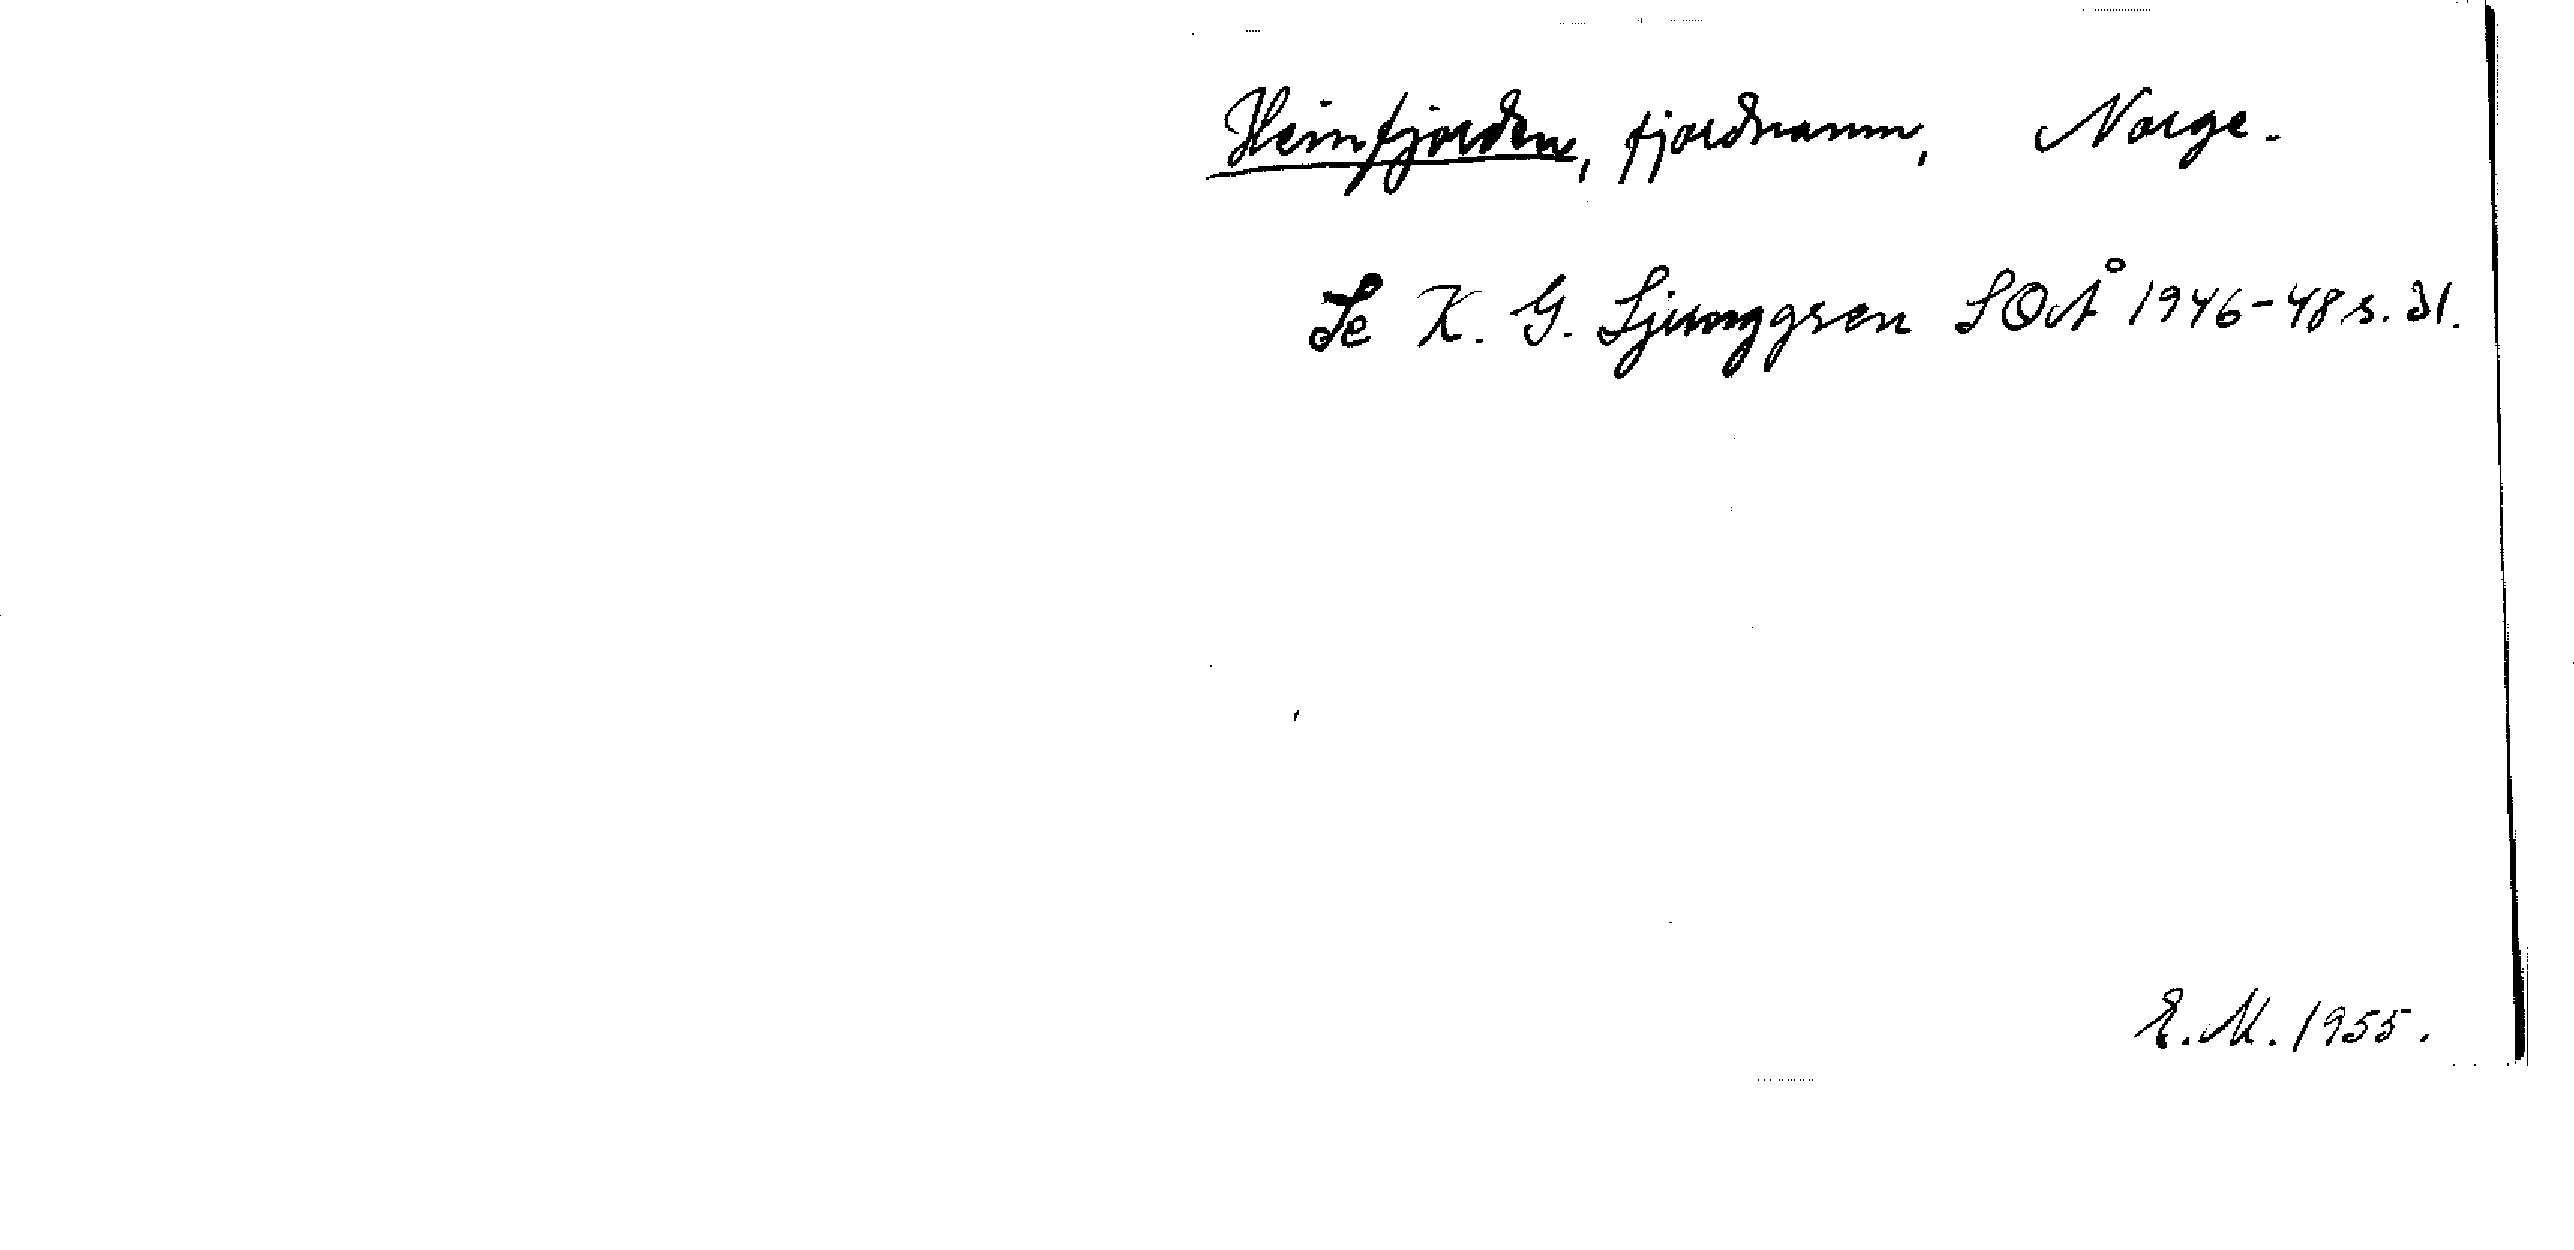 Heimfjorden, fjordnamn, Norge.
Se K. G. Ljunggren SOÅ 1946-48 s. 31.
E. M. 1955.